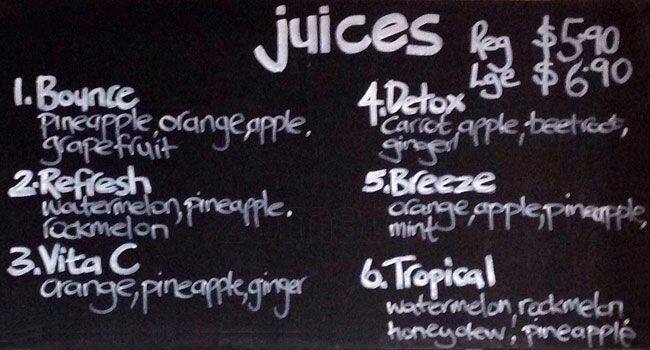 juices
Reg $5.90
Lge $6.90
1. Bounce
pineapple, orange, apple,
grapefruit
2. Refresh
watermelon, pineapple,
rockmelon
3. Vita C
orange, pineapple, ginger
4. Detox
carrot, apple, beetroot,
ginger
5. Breeze
orange, apple, pineapple,
mint
6. Tropical
watermelon, rockmelon
honeydew, pineapple